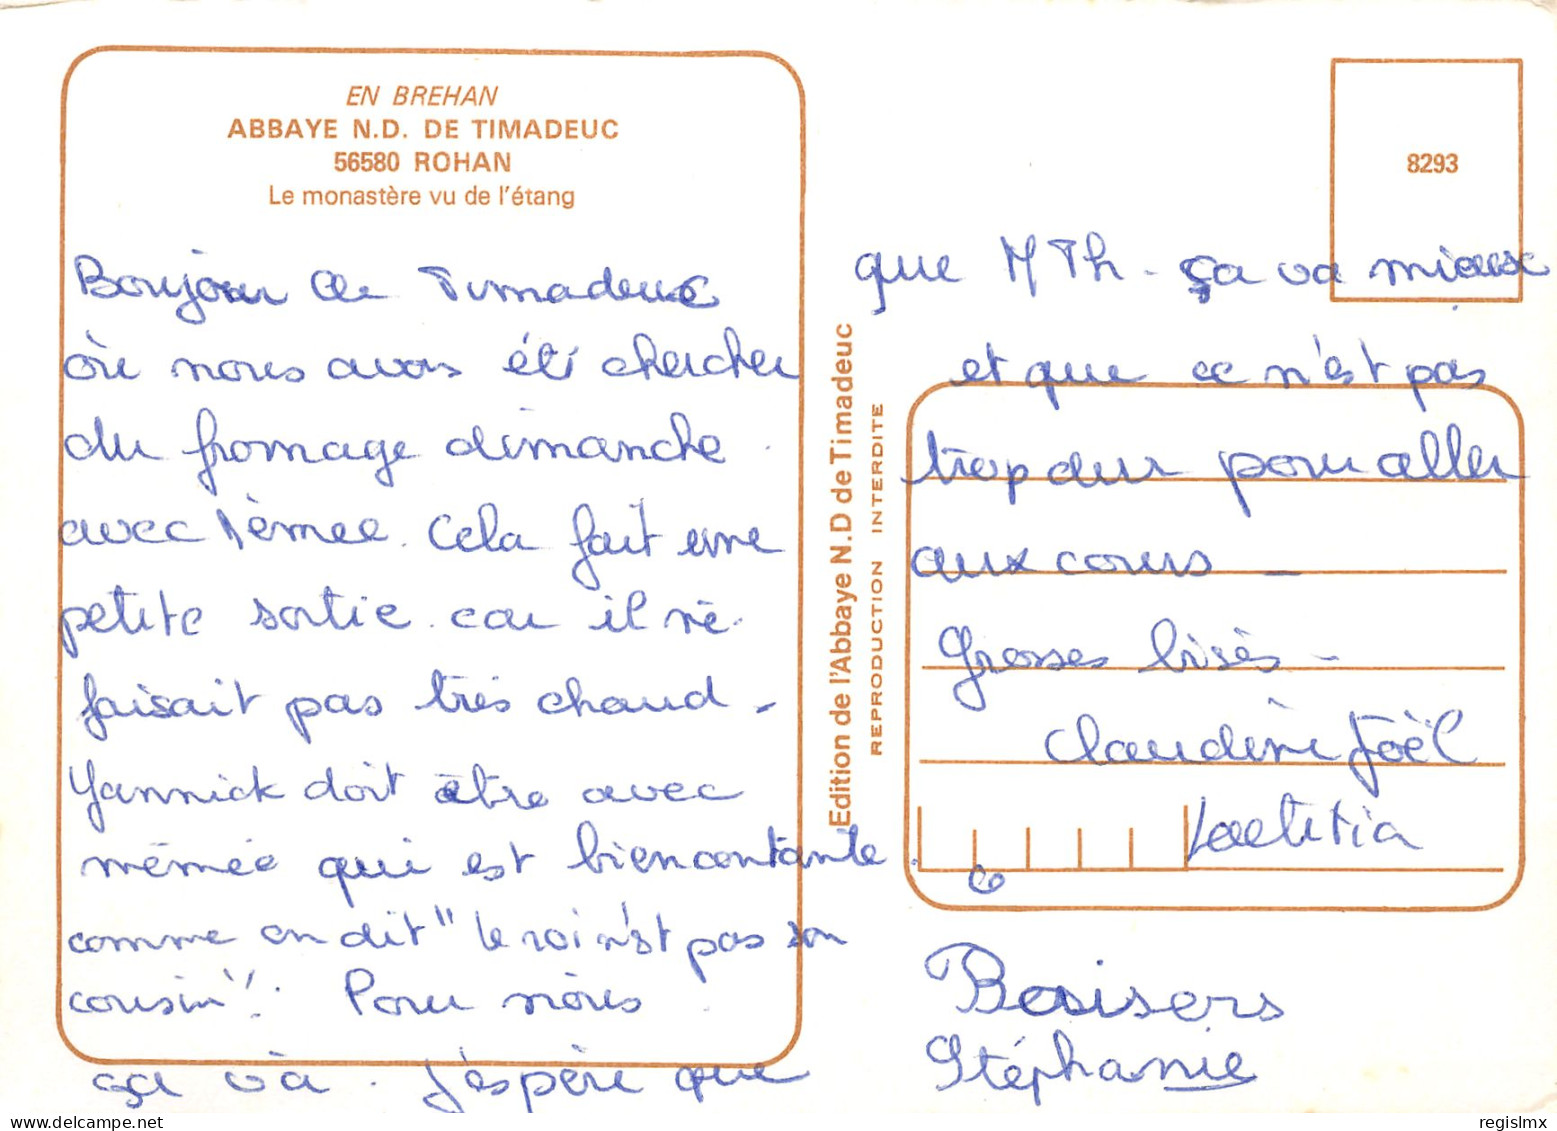 EN BREHAN
ABBAYE N.D. DE TIMADEUC
56580 ROHAN
Le monastère vu de l'étang
Bonjour de Timadeuc
où nous avons été chercher
du fromage dimanche.
avec Mémée. Cela fait une
petite sortie car il ne
faisait pas très chaud -
Yannick doit être avec
mémée qui est bien contente.
comme on dit "le roi n'est pas son
cousin". Pour nous
ça va. J'espère que
Edition de l'Abbaye N.D de Timadeuc
REPRODUCTION INTERDITE
8293
que M Th - ça va mieux
et que ce n'est pas
trop dur pour aller
aux cours -
Grosses bises -
Claudine Joël
Laetitia
Baisers
Stéphanie
regislmx